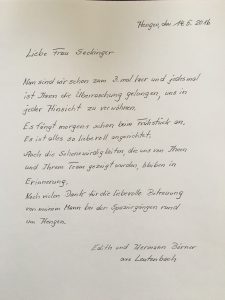 Hengen, den 14.5.2016
Liebe Frau Seckinger
Nun sind wir schon zum 3. mal hier und jedesmal
ist Ihnen die Überraschung gelungen, uns in
jeder Hinsicht zu verwöhnen.
Es fängt morgens schon beim Frühstück an,
Es ist alles so liebevoll angerichtet.
Auch die Sehenswürdigkeiten, die uns von Ihnen
und Ihrem Team gezeigt wurden, bleiben in
Erinnerung.
Noch vielen Dank für die liebevolle Betreuung
von meinem Mann bei den Spaziergängen rund
um Hengen.
Edith und Hermann Börner
aus Lautenbach